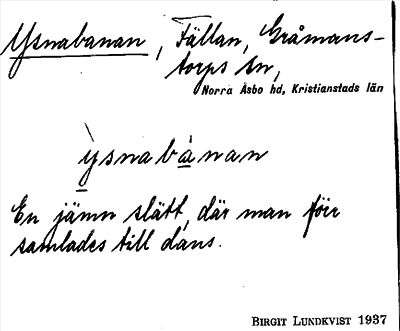 Ysnabanan, Fällan, Gråmans-
torps sn,
Norra Åsbo hd, Kristianstads län
ỳsnabànan
En jämn slätt, där man förr
samlades till dans.
BIRGIT LUNDKVIST 1937